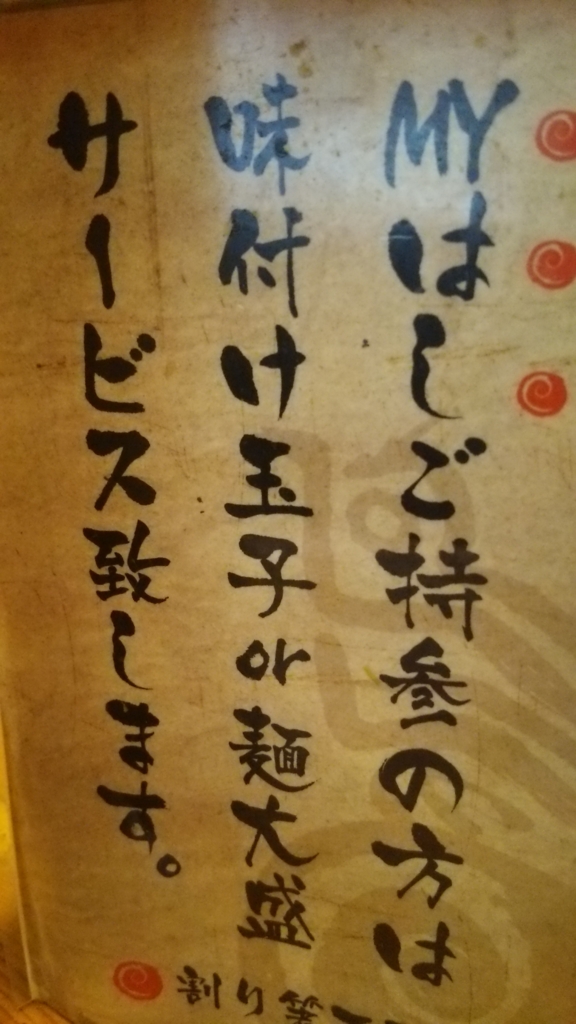 MYはしご持参の方は
味付け玉子or麺大盛
サービス致します。
割り箸